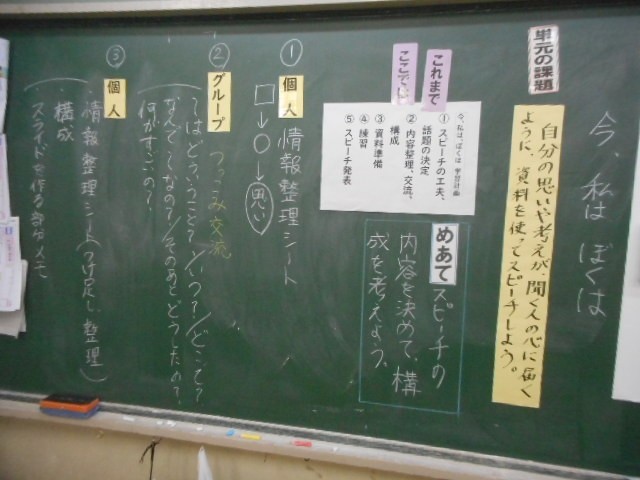 今 私は ぼくは
単元の課題
自分の思いや考えが、聞く人の心に届く
ように、資料を使ってスピーチしよう。
これまで
ここでは
今、私は、ぼくは 学習計画
① スピーチの工夫、
話題の決定
② 内容整理、交流、
構成
③ 資料準備
④ 練習
⑤ スピーチ発表
めあて スピーチの
内容を決めて、構
成を考えよう。
① 個人 情報整理シート
□→○→思い
② グループ つっこみ交流
てはどういうこと?/いつ?/どこで?
なんでそうなの?/そのあとどうしたの?
何がすごいの?
③ 個人
情報整理シート(つけ足し、整理)
構成
スライドを作る部分メモ